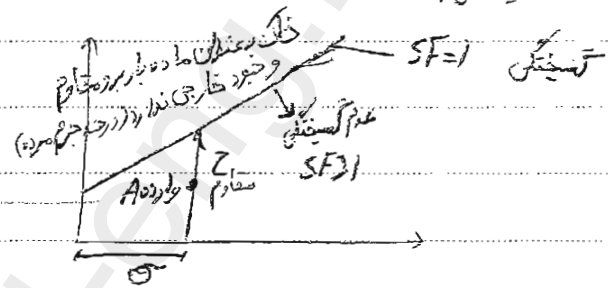 خاک به عنوان ماده باربر و مقاوم
وجود خارجی ندارد (درجه جرم مرده)
SF=1 گسیختگی
عدم گسیختگی
SF≥1
τ
مقاوم
A وارده
σ